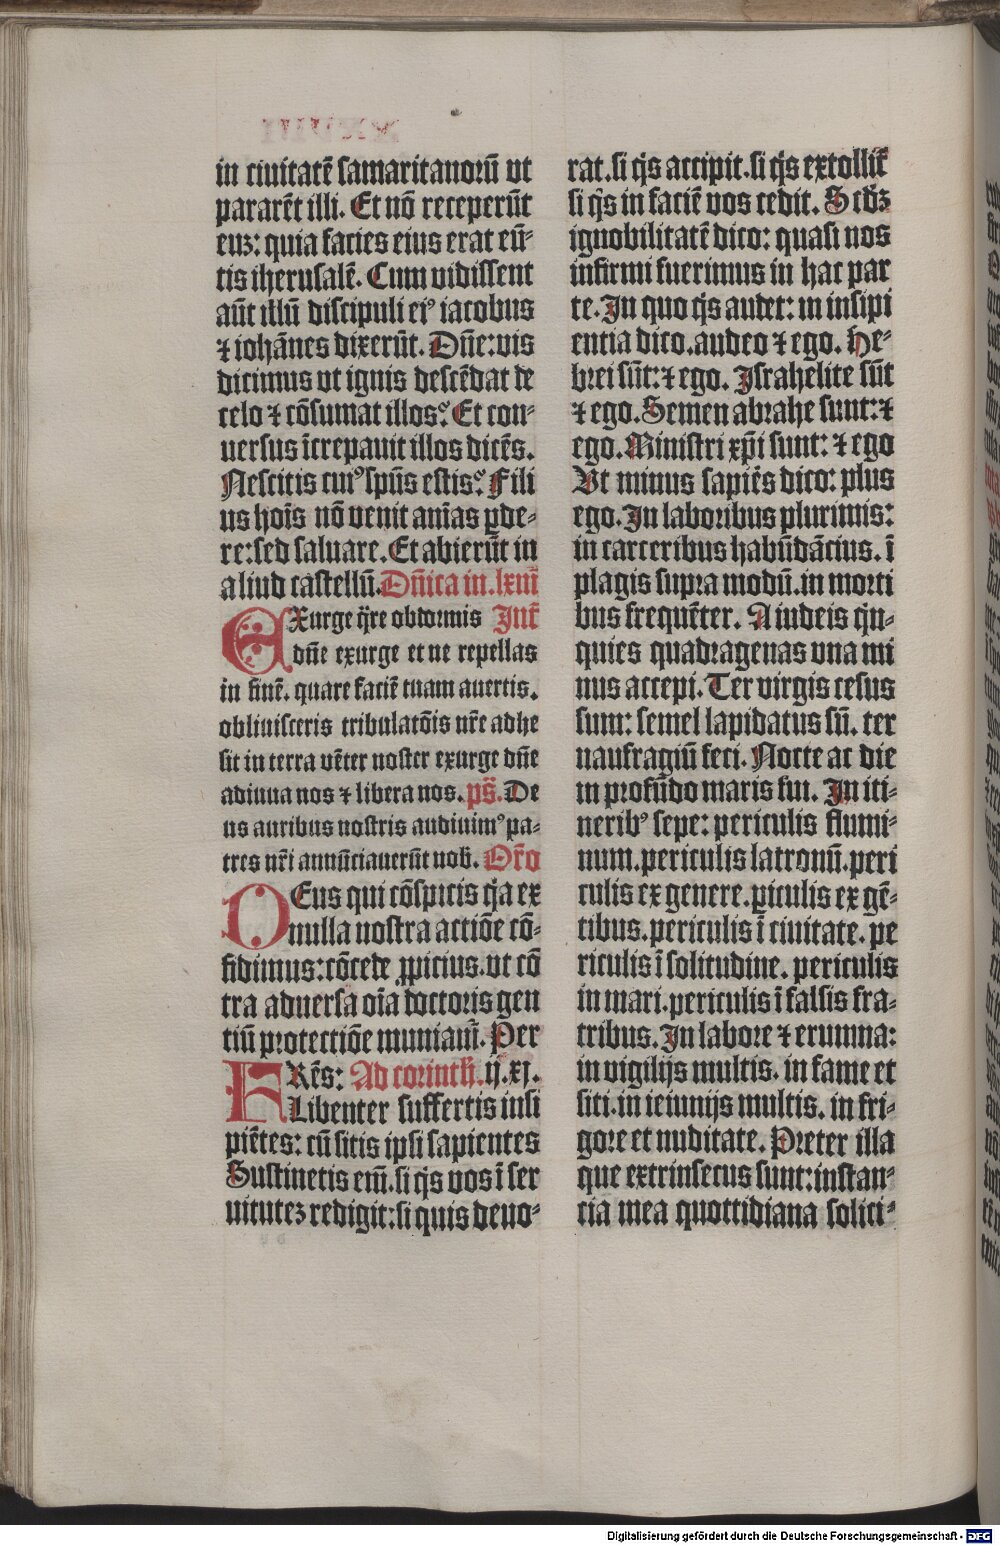 in ciuitatē samaritanorū vt
pararēt illi. Et nō receperūt
euȝ: quia facies eius erat eū-
tis iherusalē. Cum vidissent
aūt illū discipuli eiꝰ iacobus
⁊ iohānes dixerūt. Dn̄e: vis
dicimus vt ignis descēdat de
celo ⁊ cōsumat illos? Et con-
uersus īcrepauit illos dicēs.
Nescitis cuiꝰ spūs estis? Fili
us hoīs nō venit aīas ꝑde-
re: sed saluare. Et abierūt in
aliud castellū. Dn̄ica in .lxm̄
EXurge q̄re obdormis Int̄
dn̄e exurge et ne repellas
in finē. quare faciē tuam auertis.
obliuisceris tribulatōis nr̄e adhe
sit in terra vēter noster exurge dn̄e
adiuua nos ⁊ libera nos. ps̄. De
us auribus nostris audiuimꝰ pa-
tres nr̄i annūciauerūt nob̄. Or̄o
DEus qui cōspicis q̄a ex
nulla nostra actiōe cō-
fidimus: cōcede ꝓpicius. vt cō
tra aduersa oīa doctoris gen
tiū protectiōe muniam̄. Per
FRēs: Ad corinth̄. ij. xj.
Libenter suffertis insi
piētes: cū sitis ipsi sapientes
Sustinetis em̄. si q̄s vos ī ser
uitutez redigit: si quis deuo-
rat. si q̄s accipit. si q̄s extollit̄
si q̄s in faciē vos cedit. Scd̄ȝ
ignobilitatē dico: quasi nos
infirmi fuerimus in hac par
te. In quo q̄s audet: in insipi
entia dico. audeo ⁊ ego. He-
brei sūt: ⁊ ego. Israhelite sūt
⁊ ego. Semen abrahe sunt: ⁊
ego. Ministri xp̄i sunt: ⁊ ego
Vt minus sapiēs dico: plus
ego. In laboribus plurimis:
in carceribus habūdācius. ī
plagis supra modū. in morti
bus frequēter. A iudeis q̄n-
quies quadragenas vna mi
nus accepi. Ter virgis cesus
sum: semel lapidatus sū. ter
naufragiū feci. Nocte ac die
in profūdo maris fui. In iti-
neribꝰ sepe: periculis flumi-
num. periculis latronū. peri
culis ex genere. ꝑiculis ex gē-
tibus. periculis ī ciuitate. pe
riculis ī solitudine. periculis
in mari. periculis ī falsis fra-
tribus. In labore ⁊ erumna:
in vigilijs multis. in fame et
siti. in ieiunijs multis. in fri-
gore et nuditate. Preter illa
que extrinsecus sunt: instan-
cia mea quottidiana solici-
Digitalisierung gefördert durch die Deutsche Forschungsgemeinschaft - DFG